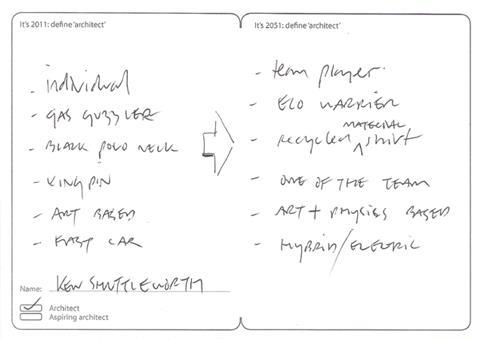 It's 2011: define 'architect'
- individual
- GAS GUZZLER
- BLACK POLO NECK
- KINGPIN
- ART BASED
- FAST CAR
Name: KEN SHUTTLEWORTH
Architect
Aspiring architect
It's 2051: define 'architect'
- team player.
- ECO WARRIER
- recycled MATERIAL shirt
- ONE OF THE TEAM
- ART + PHYSICS BASED
- HYBRID/ELECTRIC